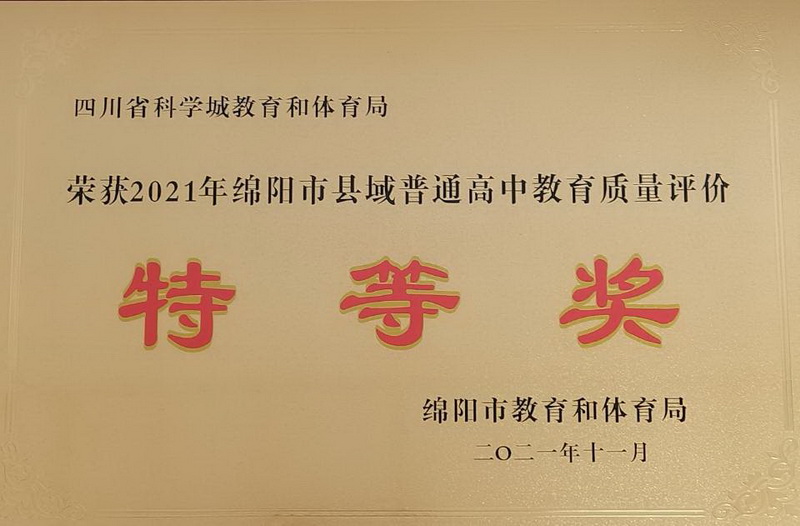 四川省科学城教育和体育局
荣获2021年绵阳市县域普通高中教育质量评价
特等奖
绵阳市教育和体育局
二〇二一年十一月